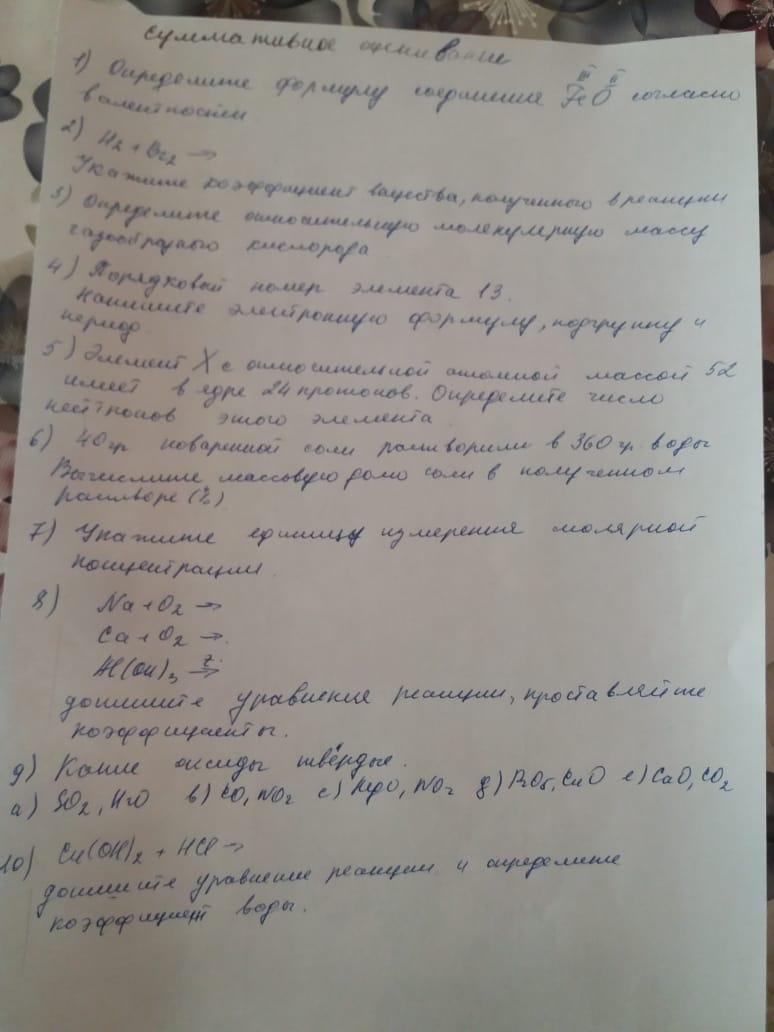 суммативное оценивание
1) Определите формулу соединения FeO согласно
III II
валентностей
2) H2 + Br2 →
Укажите коэффициент вещества, полученного в реакции
3) Определите относительную молекулярную массу
газообразного кислорода
4) Порядковый номер элемента 13.
Напишите электронную формулу, подгруппу и
период.
5) Элемент X с относительной атомной массой 52
имеет в ядре 24 протонов. Определите число
нейтронов этого элемента.
6) 40гр поваренной соли растворили в 360 гр воды
Вычислите массовую долю соли в полученном
растворе (%)
7) Укажите единицу измерения молярной
концентрации.
8) Na + O2 →
Ca + O2 →.
Al(OH)3 t→
допишите уравнения реакции, проставляйте
коэффициенты.
9) Какие оксиды твёрдые.
а) SO2, H2O в) CO, NO2 с) HgO, NO2 д) P2O5, CuO е) CaO, CO2
10) Cu(OH)2 + HCl →
допишите уравнение реакции и определите
коэффициент воды.